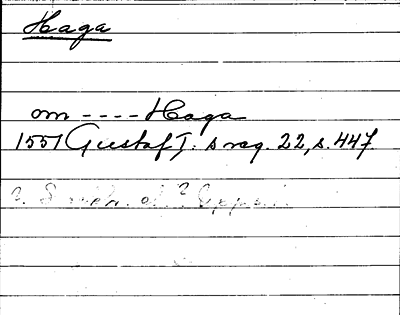 Haga
om ---- Haga
1551 Gustaf I. s reg. 22, s. 447.